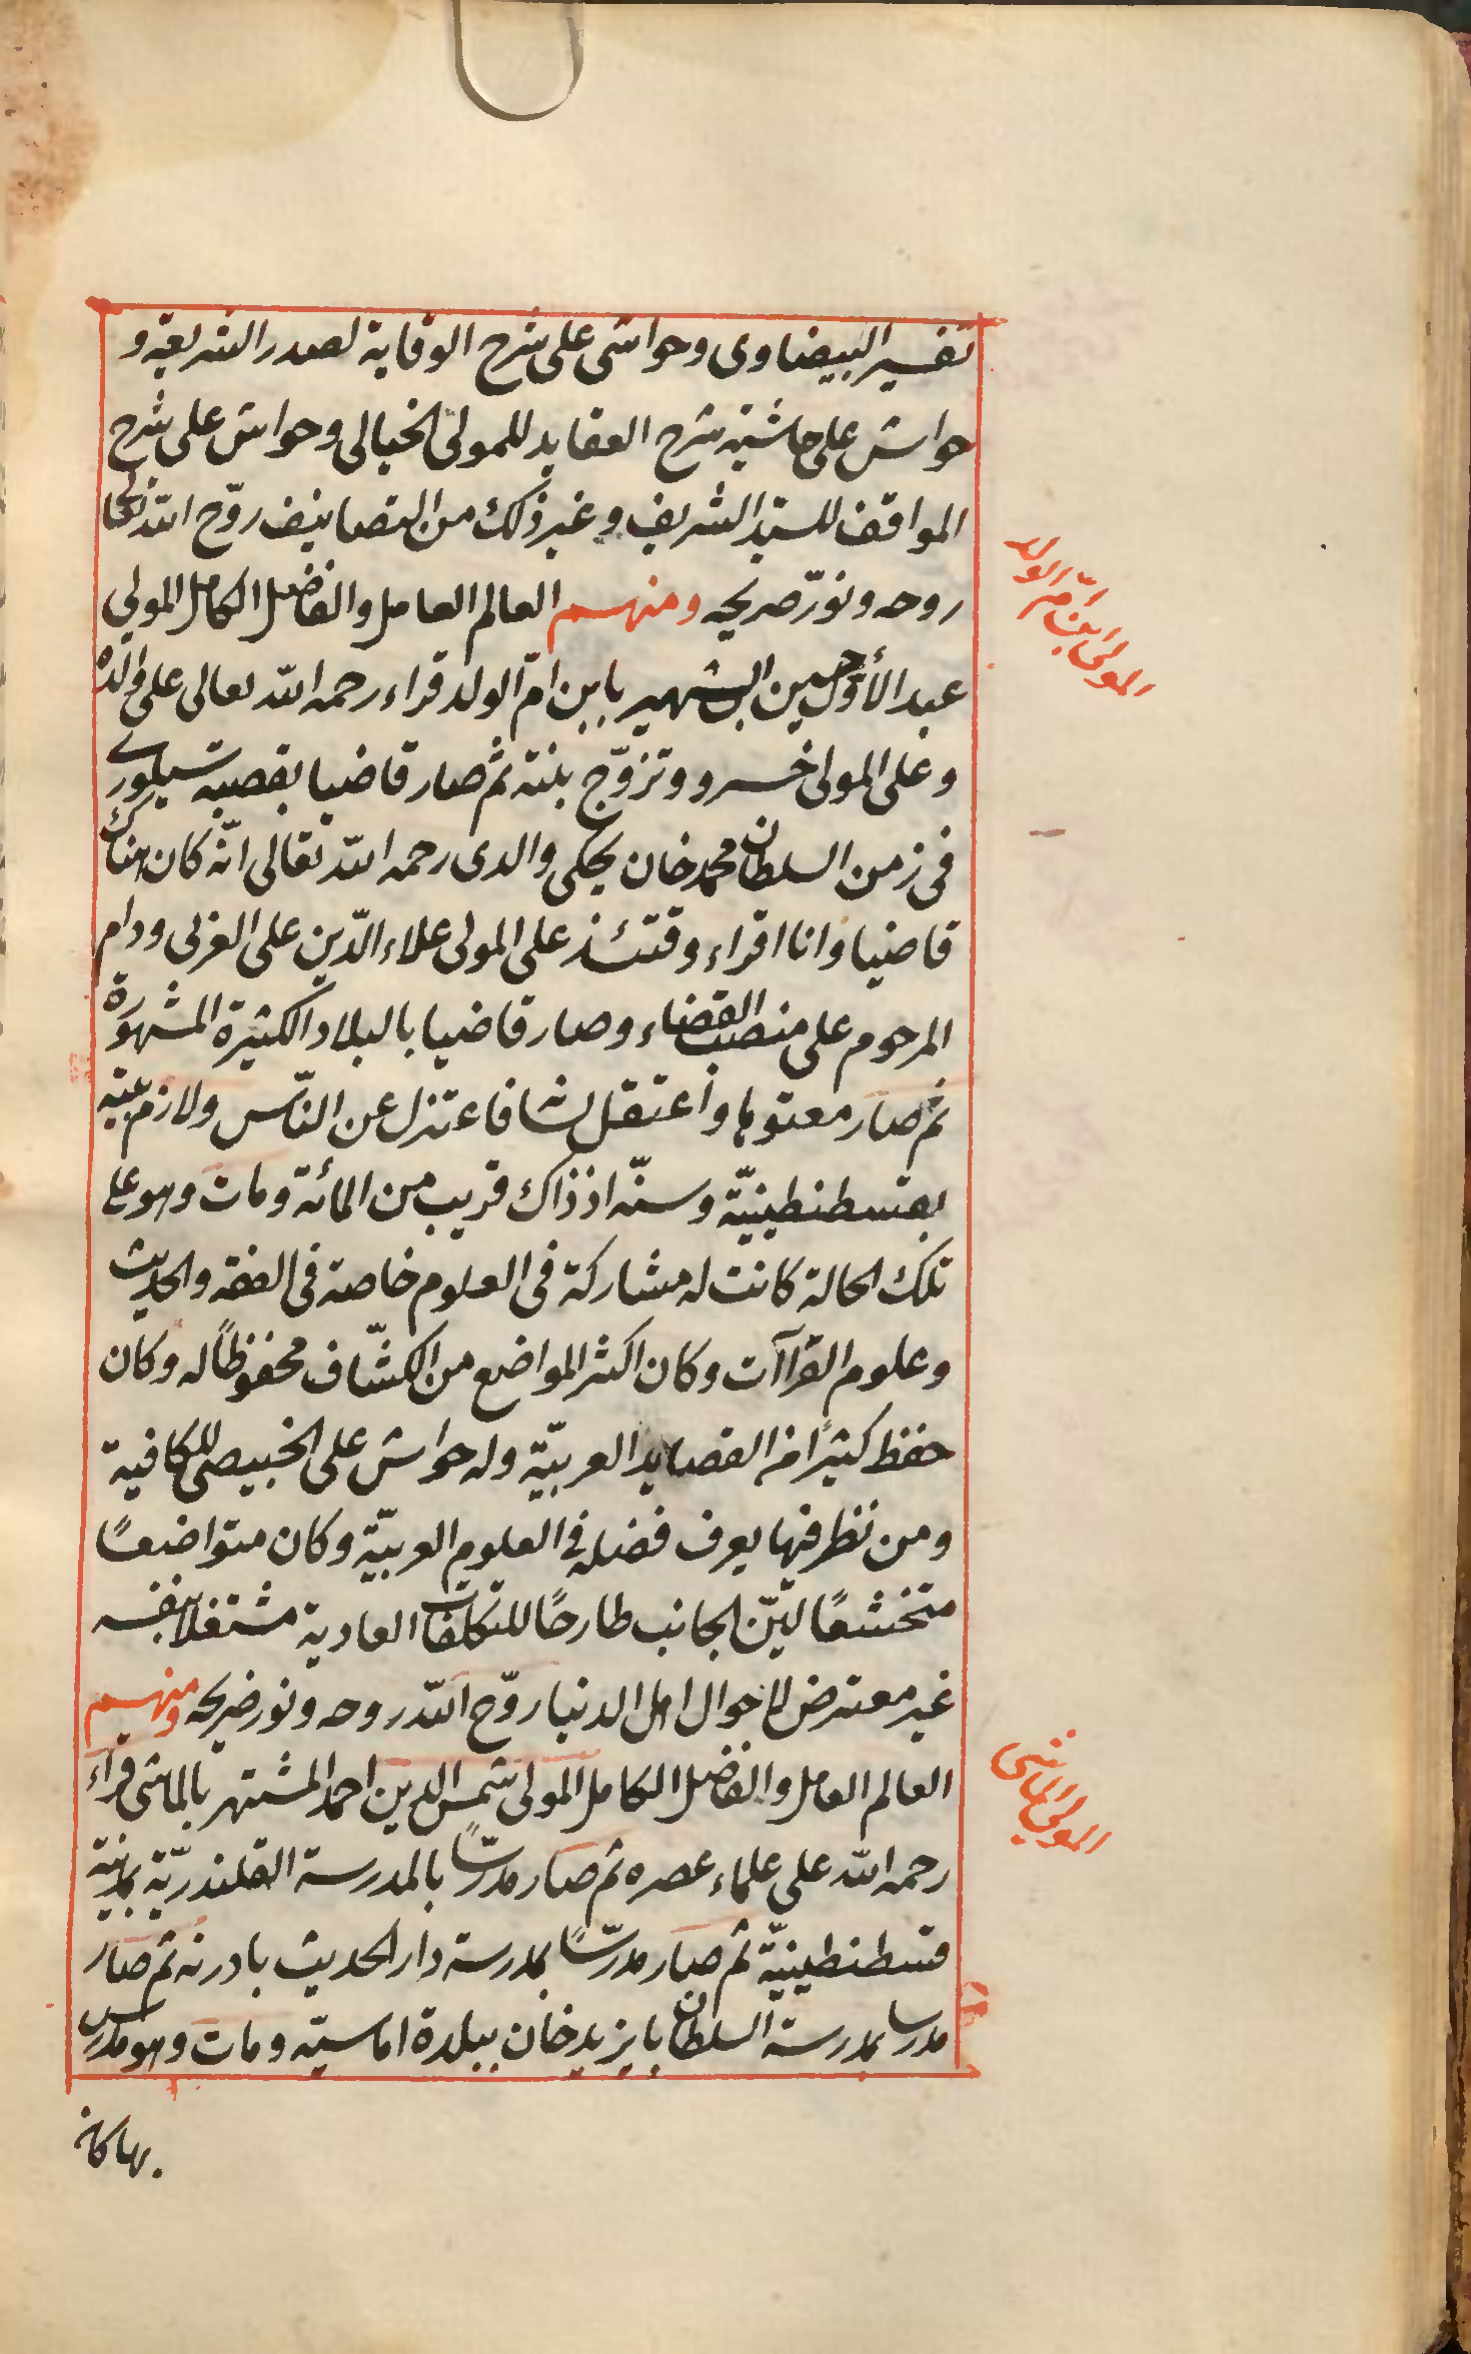 تفسير البيضاوى وحواشى على شرح الوقاية لصدر الشريعة و
حواش على حاشية شرح العقايد للمولى الخيالى وحواش على شرح
المواقف للسيد الشريف وغير ذلك من التصانيف روّح الله تعالى
روحه ونوّر ضريحه ومنهم العالم العامل والفاضل الكامل المولى
المولى ابن امّ الولد
عبد الأوّل حسين الشهير بابن امّ الولد قراء رحمه الله تعالى على والده
وعلى المولى خسرو وتزوّج بنته ثم صار قاضيا بقصبة سيلورى
فى زمن السلطان محمد خان يحكى والدى رحمه الله تعالى انّه كان هناك
قاضيا وانا اقراء وقتئذ على المولى علاء الدّين على العربى ودام
المرحوم على منصب القضاء وصار قاضيا بالبلاد الكثيرة المشهورة
ثم صار معتوها وأعتقل لسانه فاعتزل عن النّاس ولازم بيته
بقسطنطينيّة وسنّه اذ ذاك قريب من المائة ومات وهو على
تلك الحالة كانت له مشاركة فى العلوم خاصة فى الفقه والحديث
وعلوم القراآت وكان اكثر المواضع من الكشّاف محفوظًا له وكان
حفظ كثيرًا من القصايد العربيّة وله حواش على الخبيصى للكافية
ومن نظر فيها يعرف فضله فى العلوم العربيّة وكان متواضعًا
متخشعًا ليّن الجانب طارحًا للتكلفات العادية مشتغلا بنفسه
غير معترض لاحوال اهل الدنيا روّح الله روحه ونور ضريحه ومنهم
العالم العامل والفاضل الكامل المولى شمس الدين احمد المشتهر بالماشى قراء
المولى الماشى
رحمه الله على علماء عصره ثم صار مدرّسًا بالمدرسة القلندريّة بمدينة
قسطنطينيّة ثم صار مدرّسًا بمدرسة دار الحديث بادرنه ثم صار
مدرسا بمدرسة السلطان بايزيد خان ببلدة اماسيّه ومات وهو مدرس
بها كان